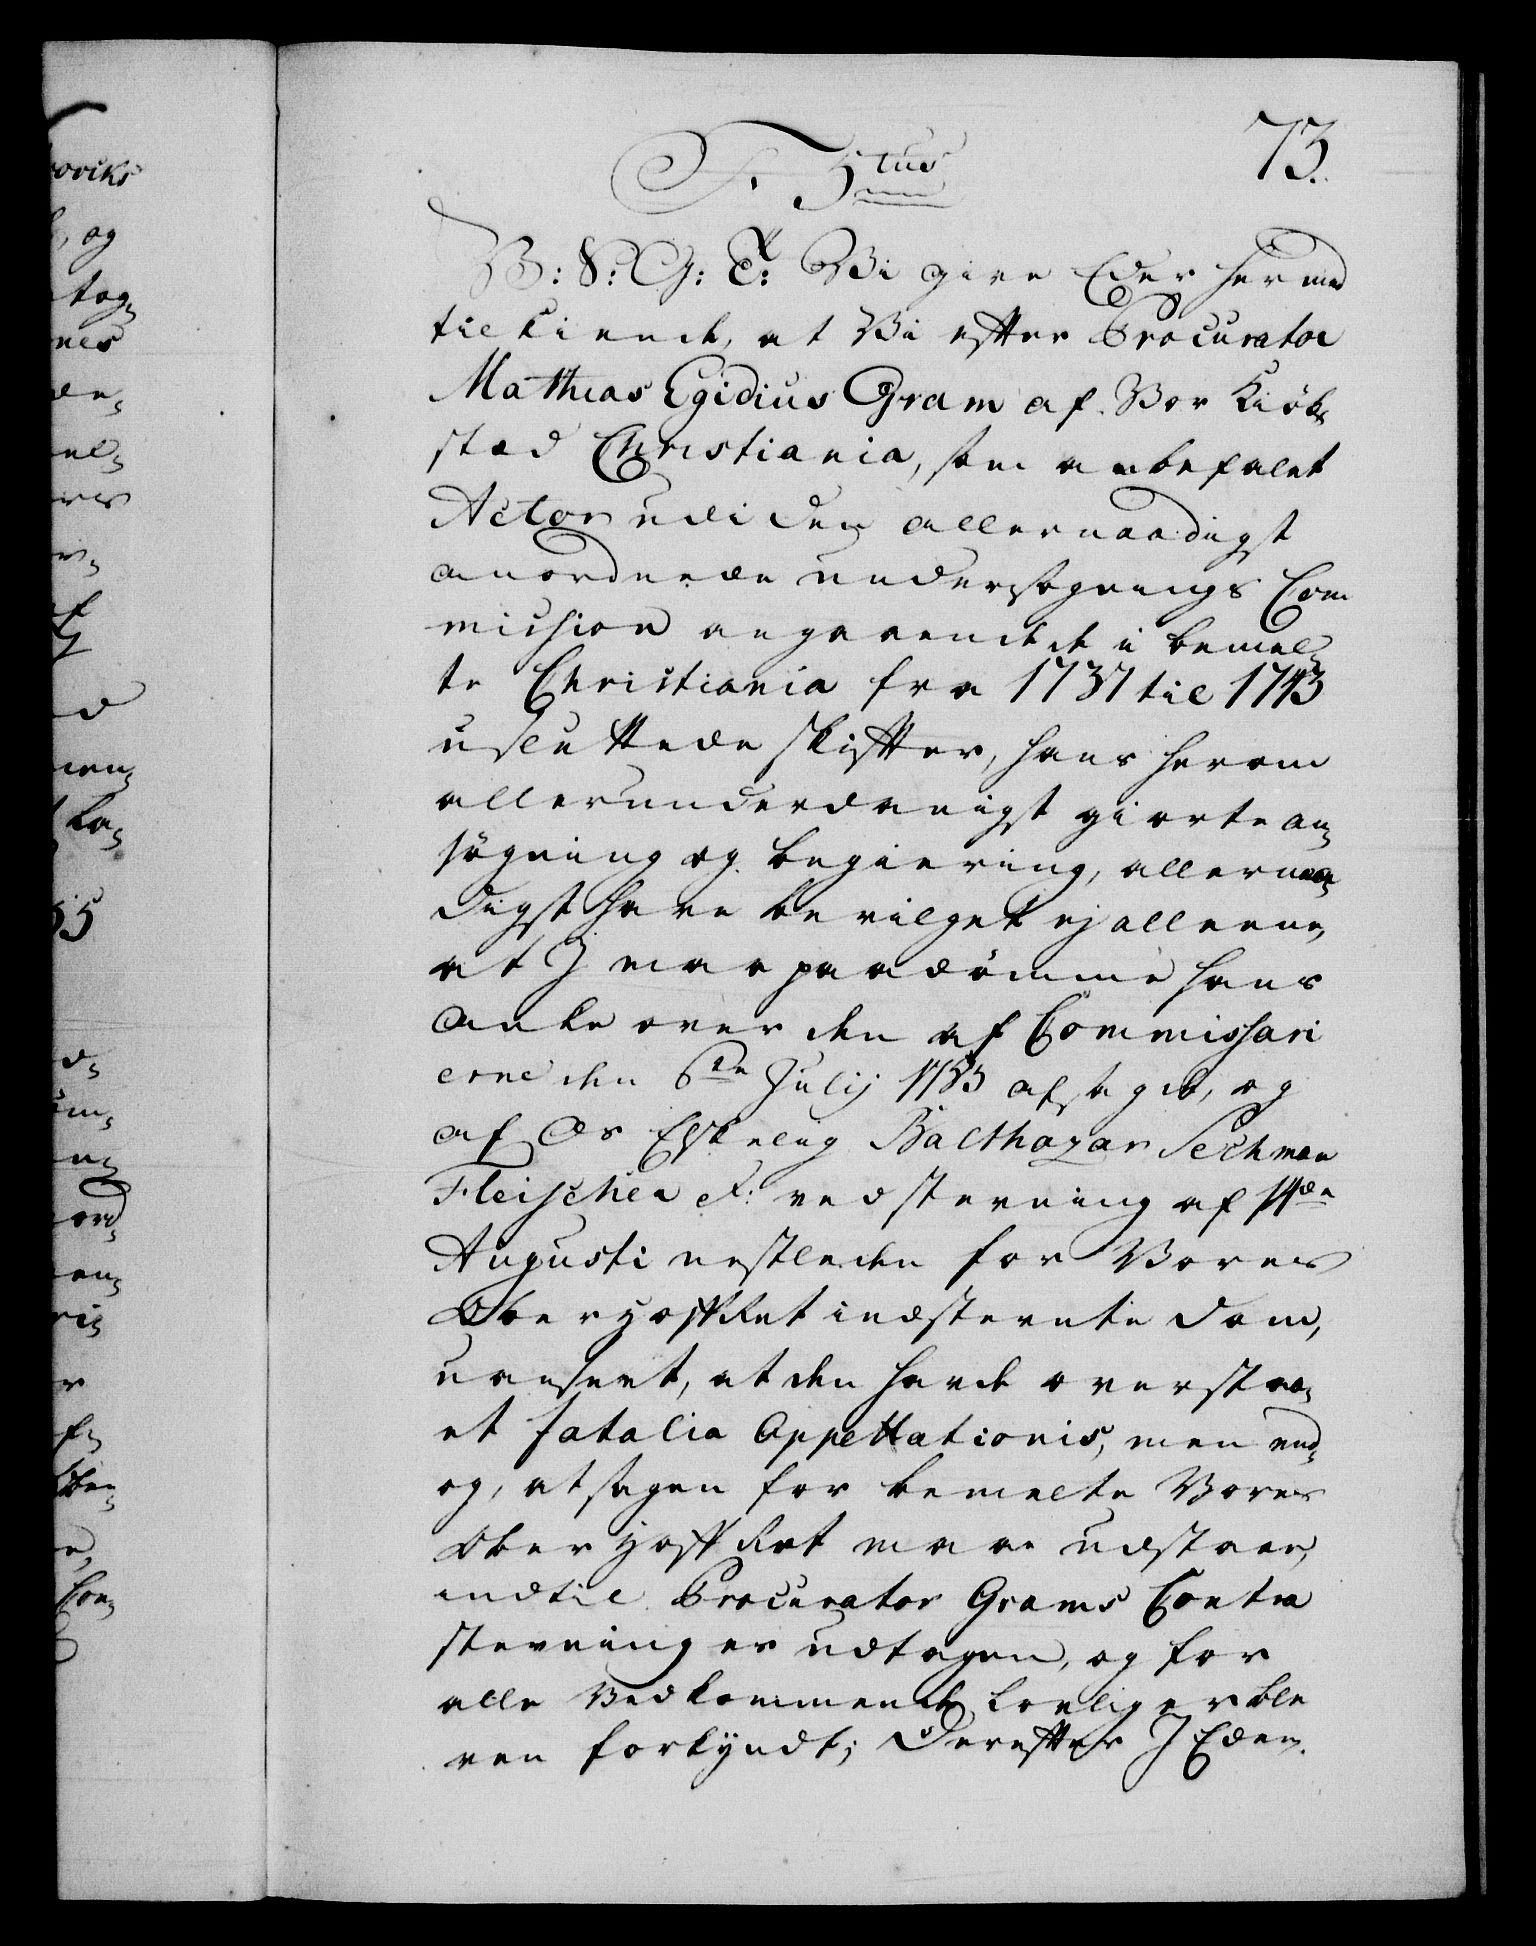 73.
F. 5tus
B: S: G: T: Vi give Eder hermed
tilkiende, at Vi efter Procurator
Mathias Egidius Gram af Vor Kiöb¬
stæd Christiania, som anbefalet
Actor udi den allernaadigst
anordnede undersøgnings Com
mission angaaende de i bemel¬
te Christiania fra 1737 til 1743
usluttede Skifter, hans herom
allerunderdanigst giorte an¬
søgning og begiering, allernaa¬
digst have bevilget ej alleene,
at I maa paadömme hans
Anke over den af Commissari
erne den 6de Julij 1755 afsagde, og
af Os Elskelig Balthazar Sechman
Fleischer &: ved stevning af 14de
Augusti nestleden for Vores
Ober Hoff Ret indstevnte Dom,
uanseet, at den havde overstaa¬
et fatalia Appellationis, men end¬
og, at sagen for bemelte Vores
Ober Hoff Ret maae udstaae,
indtil Procurator Grams Contra
stevning er udtagen, og for
alle Vedkommende lovlig er ble
ven forkyndt; Derefter I Eder
ooriks
, og
tag¬
nes
de¬
el¬
d
men¬
La¬
55
d¬
um¬
ord¬
en¬
r
Con¬